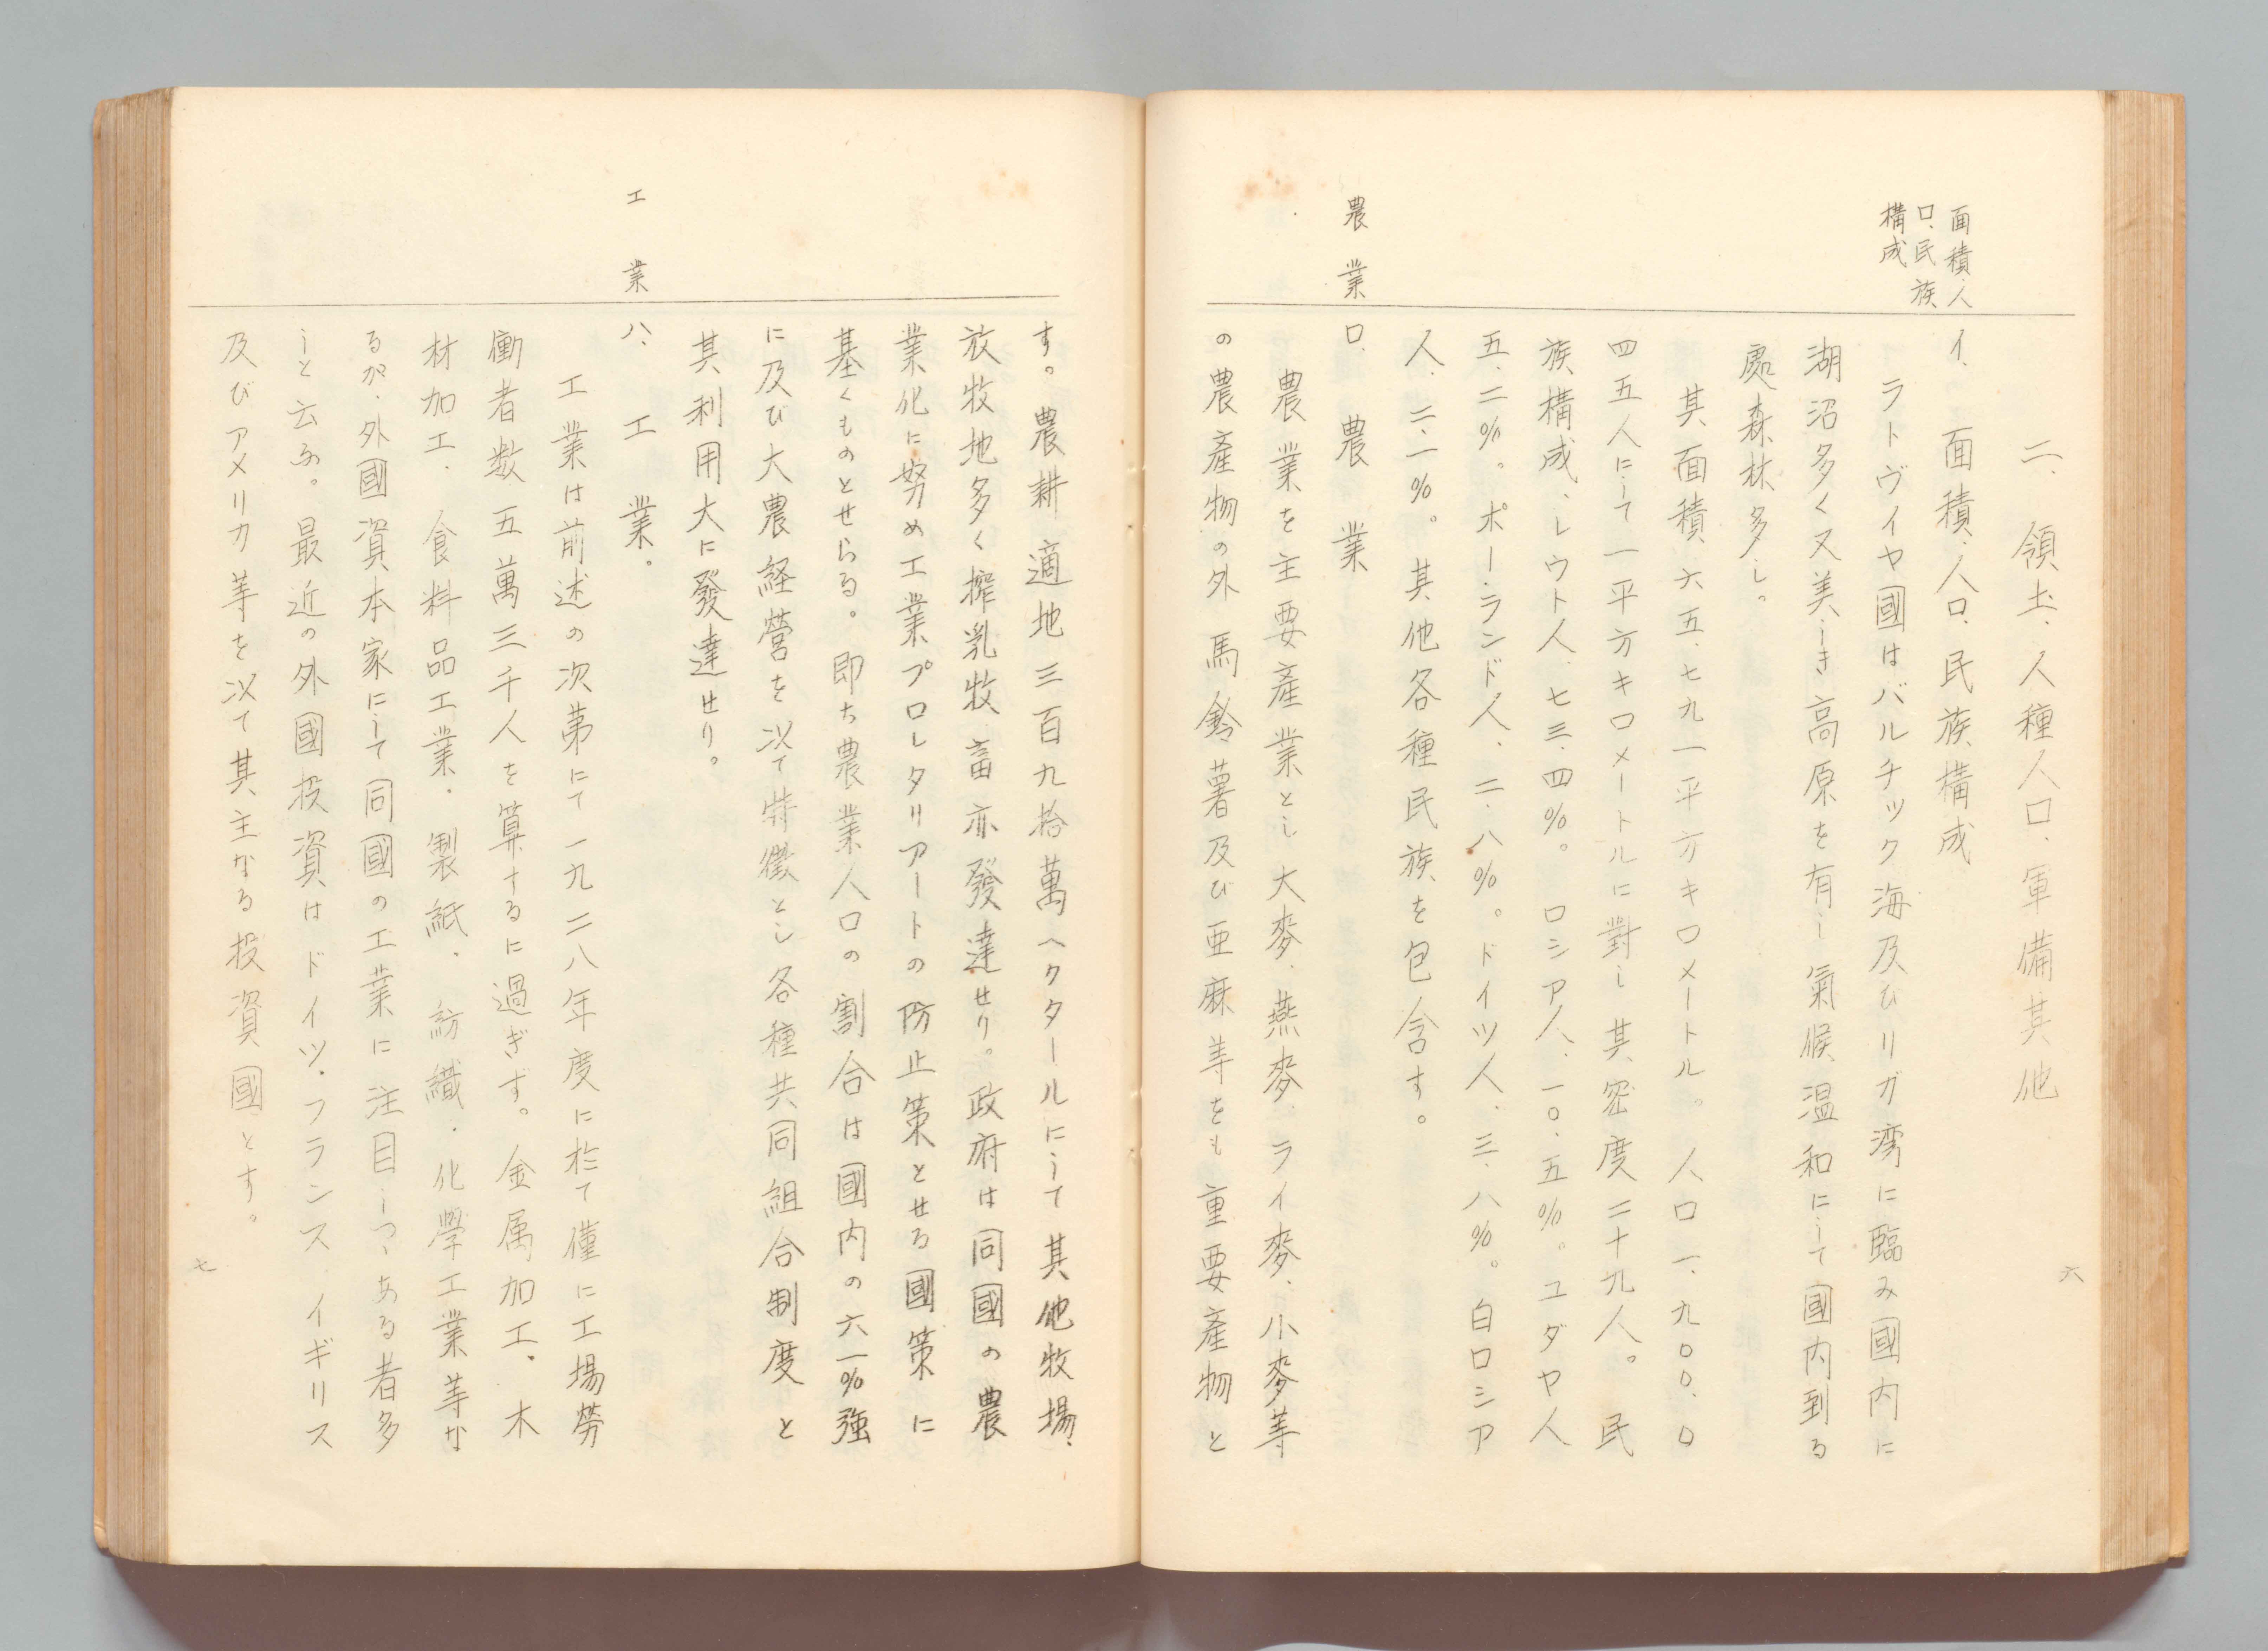 面積、人
口、民族
構成
二、領土、人種人口、軍備其他
イ、面積、人口、民族構成
ラトヴイヤ國はバルチツク海及びリガ湾に臨み國内に
湖沼多く又美しき高原を有し氣候温和にして國内到る
處森林多し。
其面積六五、七九一平方キロメートル。人口一、九〇〇、〇
四五人にして一平方キロメートルに對し其密度二十九人。民
族構成、レウト人、七三、四%。ロシア人、一〇、五%。ユダヤ人
五、二%。ポーランド人、二、八%。ドイツ人、三、八%。白ロシア
人、二、一%。其他各種民族を包含す。
農業
ロ、農業
農業を主要産業とし大麥、燕麥、ライ麥、小麥等
の農産物の外馬鈴薯及び亜麻等をも重要産物と
六
す。農耕適地三百九拾萬ヘクタールにして其他牧場、
放牧地多く搾乳牧畜亦發達せり。政府は同國の農
業化に努め工業プロレタリアートの防止策とせる國策に
基くものとせらる。即ち農業人口の割合は國内の六一%強
に及び大農経營を以て特徴とし各種共同組合制度と
其利用大に發達せり。
工業
ハ、工業。
工業は前述の次第にて一九二八年度に於て僅に工場勞
働者数五萬三千人を算するに過ぎず。金属加工、木
材加工、食料品工業、製紙、紡織、化學工業等な
るが、外國資本家にして同國の工業に注目しつゝある者多
しと云ふ。最近の外國投資はドイツ、フランス イギリス
及びアメリカ等を以て其主なる投資國とす。
七